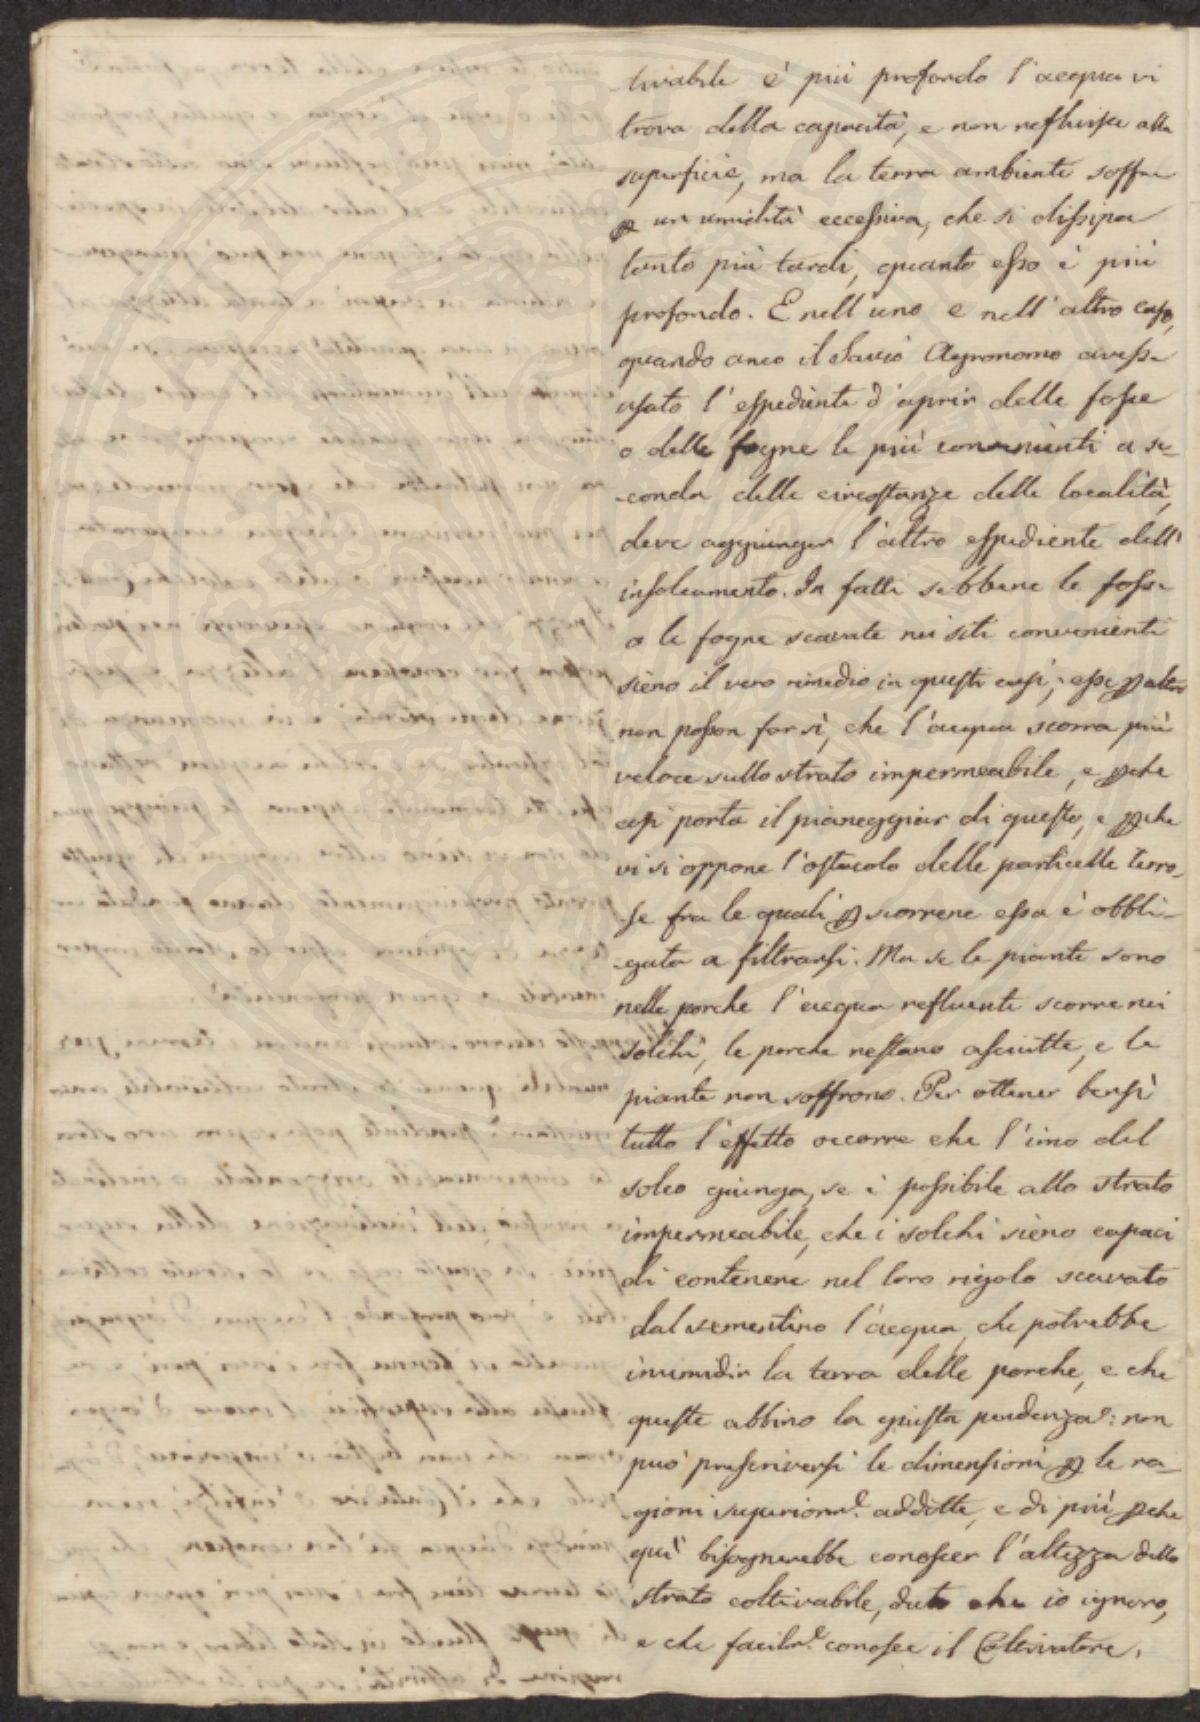 tivabile è più profondo l'acqua vi
trova della capacità, e non refluisce alla
superficie, ma la terra ambiente soffre
un umidità eccessiva, che si dissipa
tanto più tardi, quanto esso è più
profondo. E nell'uno e nell'altro caso,
quando anco il Savio Agronomo avesse
usato l'espediente d'aprir delle fosse
o delle fogne le più convenienti a se-
conda delle circostanze delle località,
deve aggiunger l'altro espediente dell'
insolcamento. In fatti sebbene le fosse
o le fogne scavate nei siti convenienti
sieno il vero rimedio in questi casi, esse p altro
non posson far sì, che l'acqua scorra più
veloce sullo strato impermeabile, e pche
così porta il pianeggiar di questo, e pche
vi si oppone l'ostacolo delle particelle terro-
se fra le quali p scorrere essa è obbli-
gata a filtrarsi. Ma se le piante sono
nelle porche l'acqua refluente scorre nei
solchi, le porche restano asciutte, e le
piante non soffrono. Per ottener bensì
tutto l'effetto occorre che l'imo del
solco giunga, se è possibile allo strato
impermeabile, che i solchi sieno capaci
di contenere nel loro rigolo scavato
dal sementino l'acqua, che potrebbe
inumidir la terra delle porche, e che
queste abbino la giusta pendenza: non
può prescriversi le dimensioni p le ra-
gioni superiorme. addotte, e di più pche
quì bisognerebbe conoscer l'altezza dello
strato coltivabile, dato che io ignoro,
e che facilme. conosce il Coltivatore.